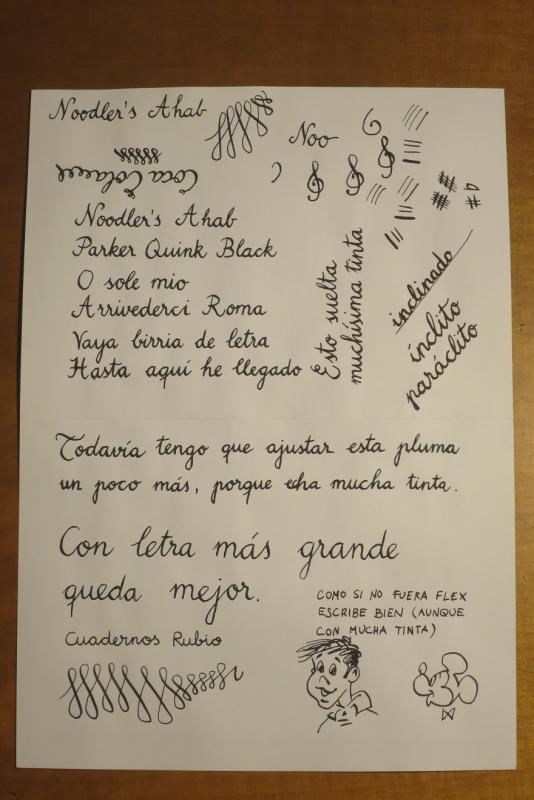 Noodler's Ahab
Noo
Coca Cola
Noodler's Ahab
Parker Quink Black
O sole mio
Arrivederci Roma
Vaya birria de letra
Hasta aquí he llegado
Esto suelta
muchísima tinta
inclinado
ínclito
paráclito
Todavía tengo que ajustar esta pluma
un poco más, porque echa mucha tinta.
Con letra más grande
queda mejor.
COMO SI NO FUERA FLEX
ESCRIBE BIEN (AUNQUE
CON MUCHA TINTA)
Cuadernos Rubio